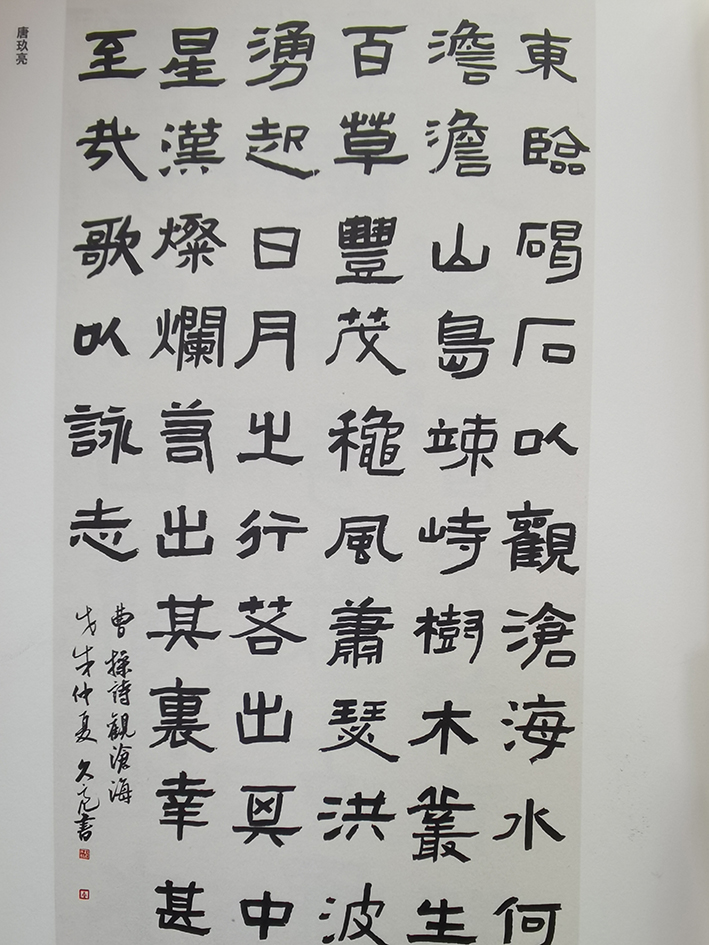 東臨碣石以觀滄海水何
澹澹山島竦峙樹木叢生
百草豐茂穐風蕭瑟洪波
湧起日月之行若出其中
星漢燦爛若出其裏幸甚
至哉歌以詠志
曹操詩觀滄海
戊戌仲夏久亮書
唐玖亮